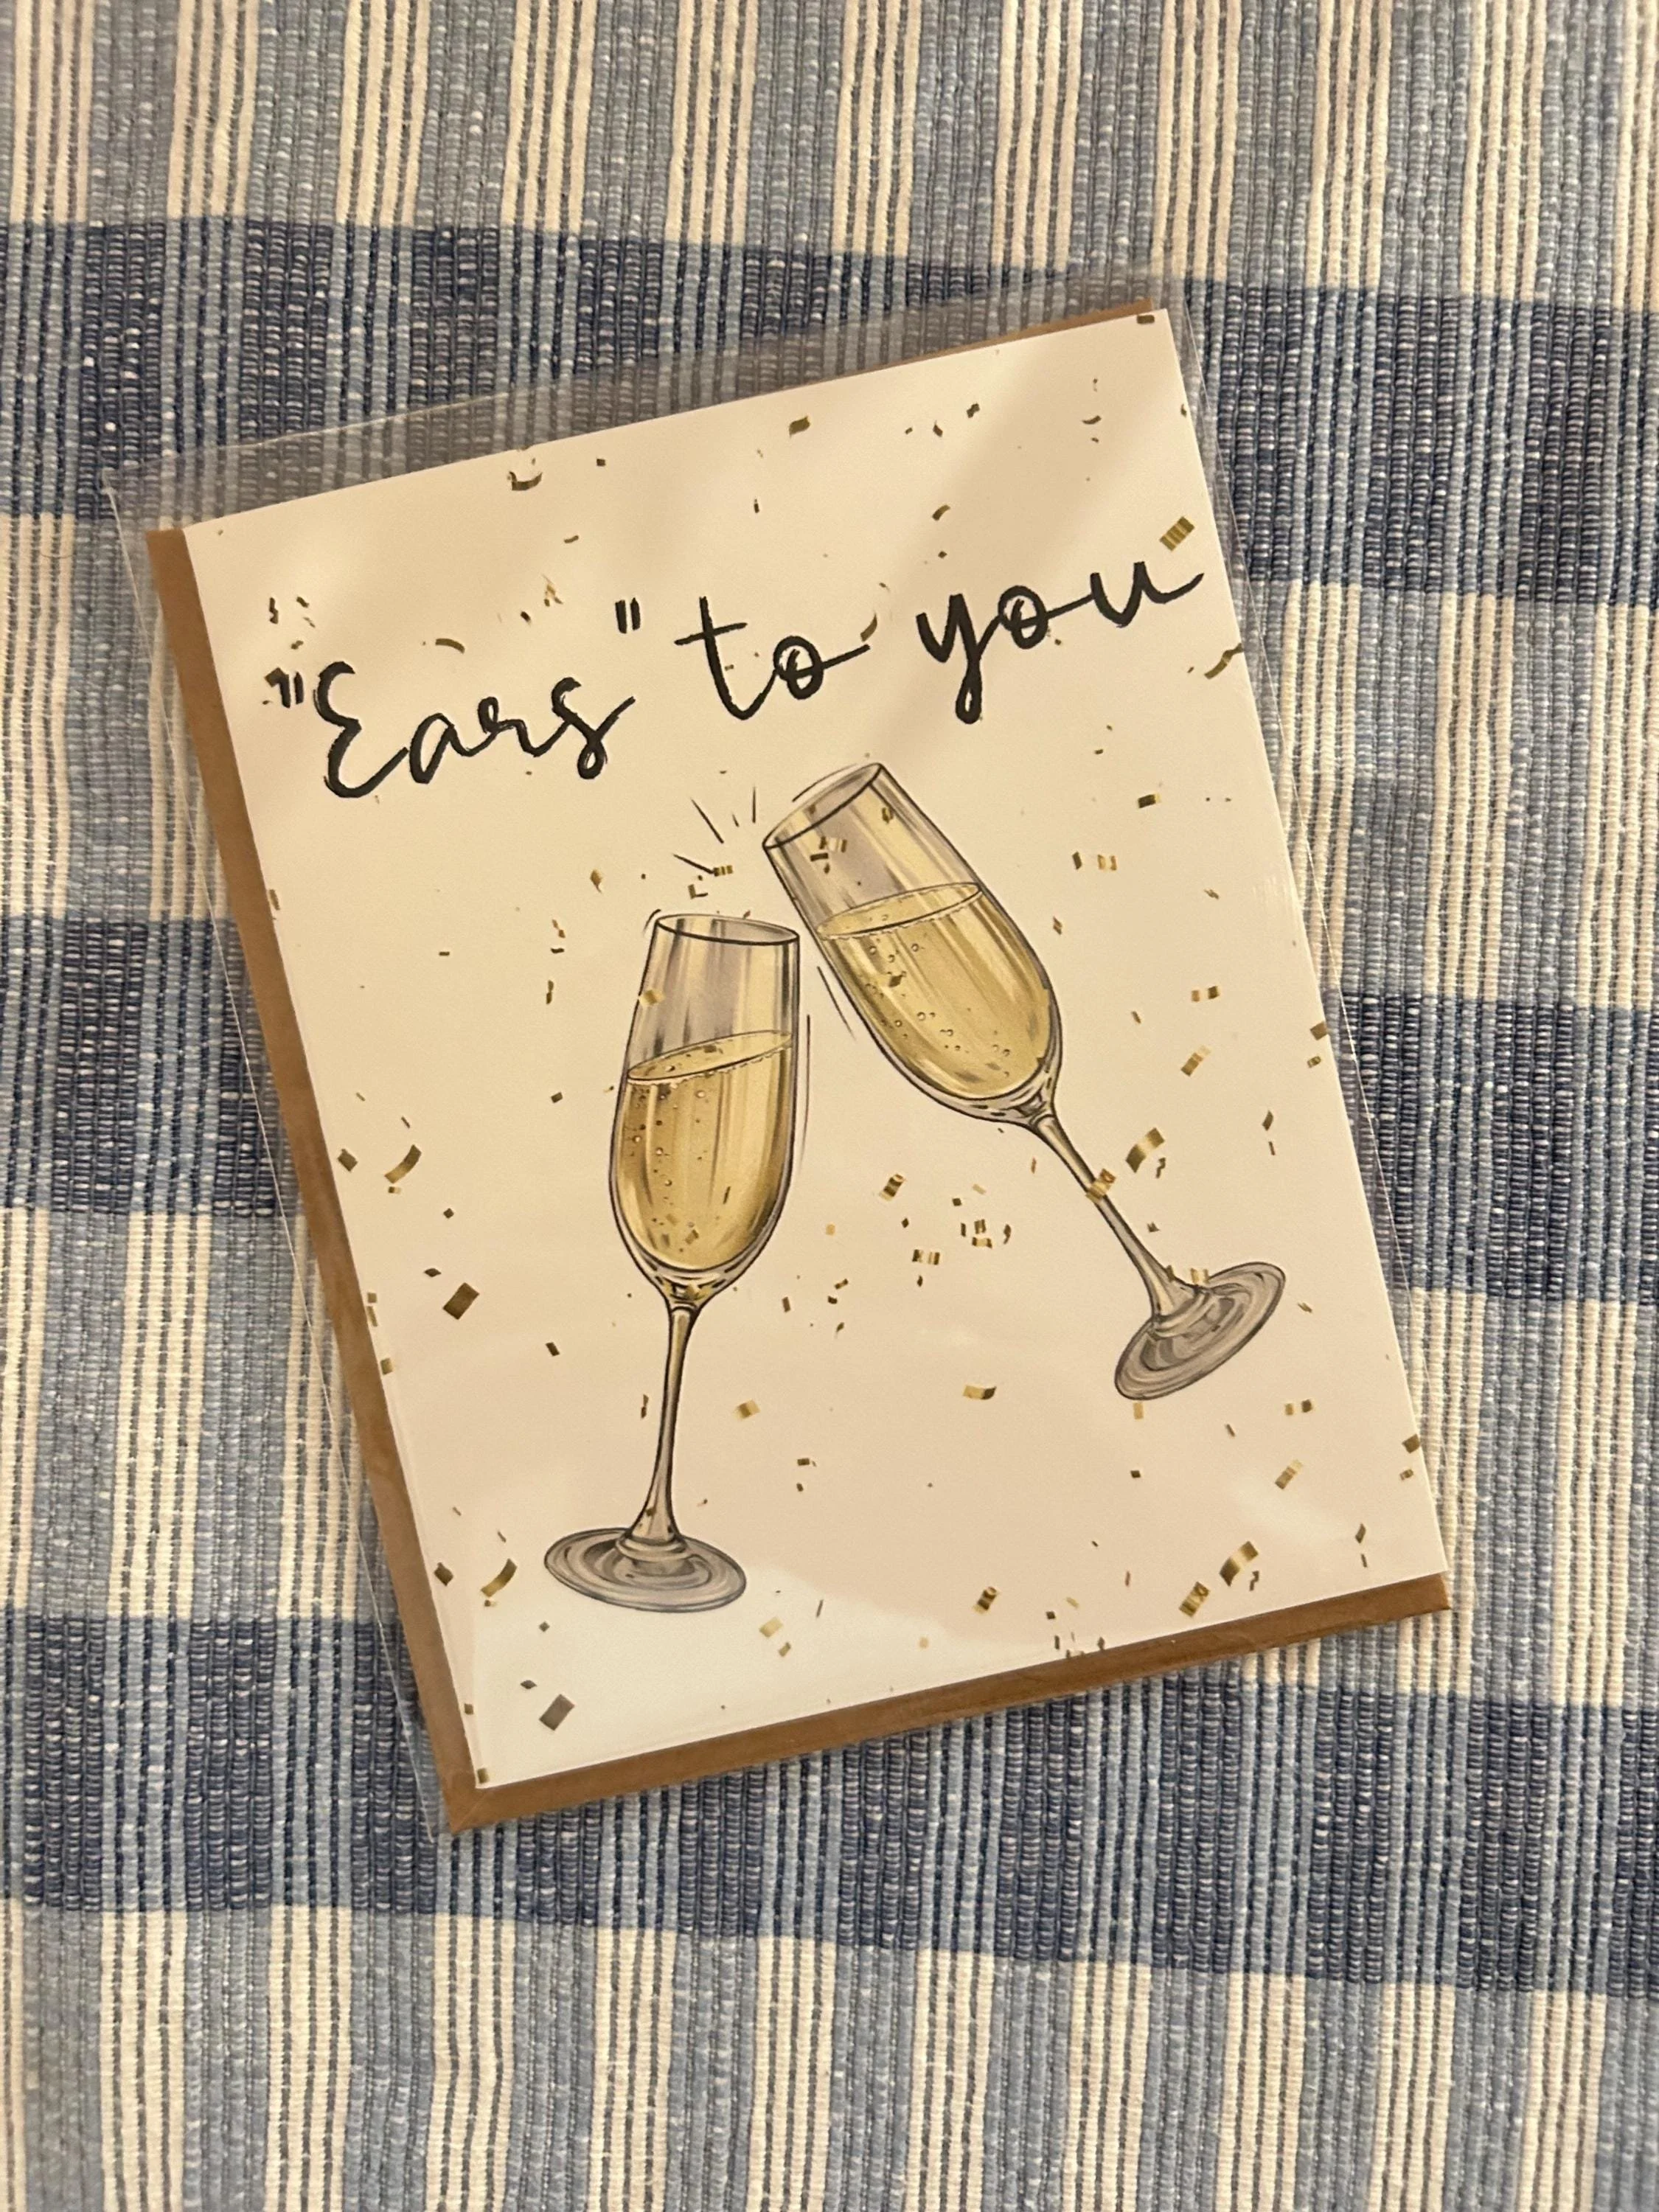 "Ears" to you